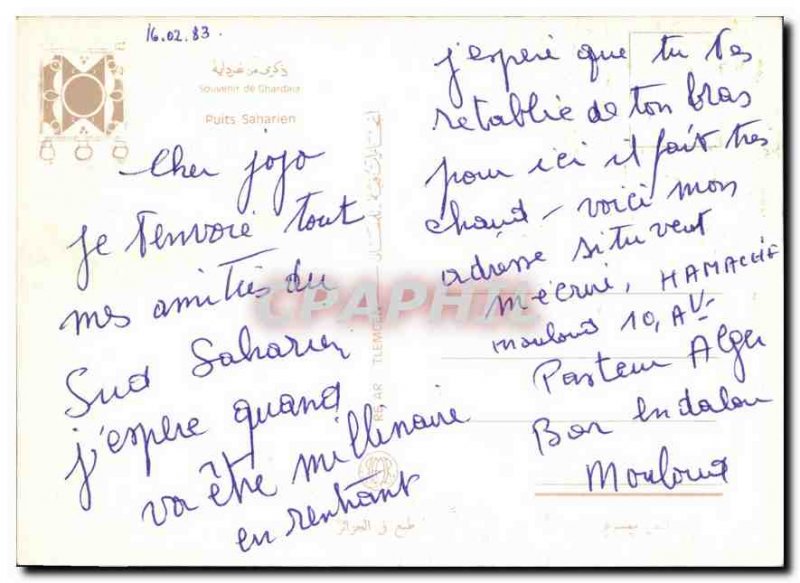 16.02.83
ذكرى من غرداية
Souvenir de Ghardaia
Puits Saharien
Cher jojo
je t'envoie tout
mes amitiés du
Sud Saharien
j'espere quand
va être millenaire
en rentrant
j'espere que tu t'es
retablie de ton bras
pour ici il fait tres
chaud - voici mon
adresse si tu veut
m'ecrire, HAMACHE
mouloud 10, AV.
Pasteur Alger
Bar Andalou
Mouloud
TLEMCEN
طبع في الجزائر
CPAPHIL